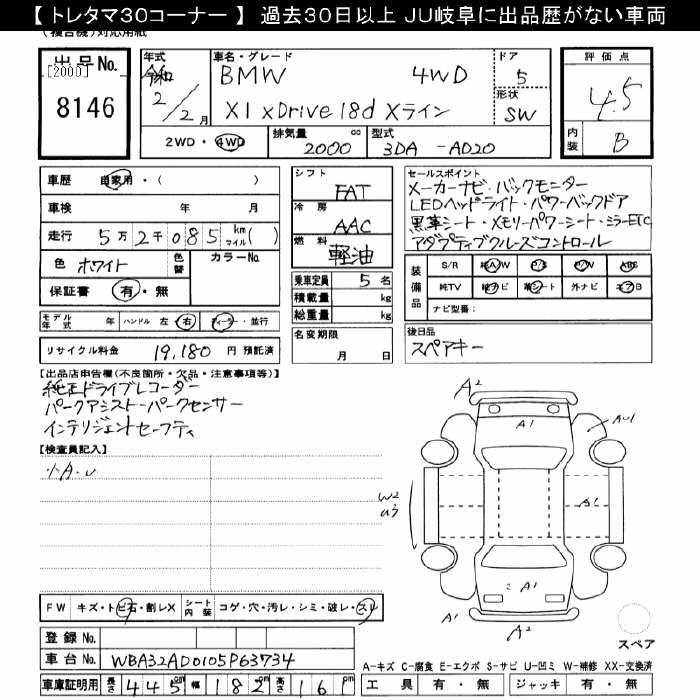 【 トレタマ30コーナー 】 過去30日以上 JU岐阜に出品歴がない車両
(複合機)対応用紙
出品No.
[2000]
8146
年式
令和
2/2月
車名・グレード
BMW 4WD
X1 xDrive18d Xライン
ドア
5
形状
SW
評価点
4.5
内装
B
2WD・4WD
排気量 cc
2000
型式
3DA-AD20
車歴 自家用・( )
車検 年 月
走行 5万2千085 km マイル( )
色 ホワイト
色替
カラーNo.
保証書 有・無
モデル年式 年
ハンドル 左 右
ディーラー・並行
リサイクル料金 19,180 円 預託済
シフト
FAT
冷房
AAC
燃料
軽油
乗車定員 5 名
積載量 kg
総重量 kg
名変期限
月 日
セールスポイント
メーカーナビ・バックモニター
LEDヘッドライト・パワーバックドア
黒革シート・メモリパワーシート・ミラーETC
アダプティブクルーズコントロール
装備品
S/R 純A/W P/S P/W ABS
純TV 純ナビ 革シート 外ナビ エアB
ナビ型番:
後日品
スペアキー
【出品店申告欄(不良箇所・欠品・注意事項等)】
純正ドライブレコーダー
パークアシスト・パークセンサー
インテリジェントセーフティ
【検査員記入】
小A・U
A2
A1
AU1
W2
U3
A1
A1
A1
A2
スペア
FW キズ・トビ石・割レX
シート内装 コゲ・穴・汚レ・シミ・破レ・スレ
登録No.
車台No. WBA32AD0105P63734
車庫証明用 長さ 445 cm 幅 182 cm 高さ 161
A-キズ C-腐食 E-エクボ S-サビ U-凹ミ W-補修 XX-交換済
工具 有・無 ジャッキ 有・無